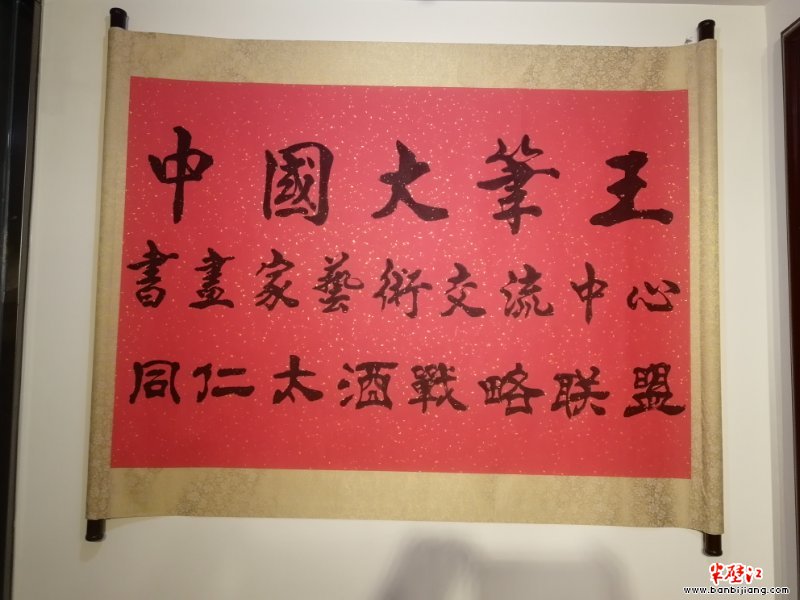 中國大筆王
書畫家藝術交流中心
同仁太酒戰略联盟
半壁江
www.banbijiang.com